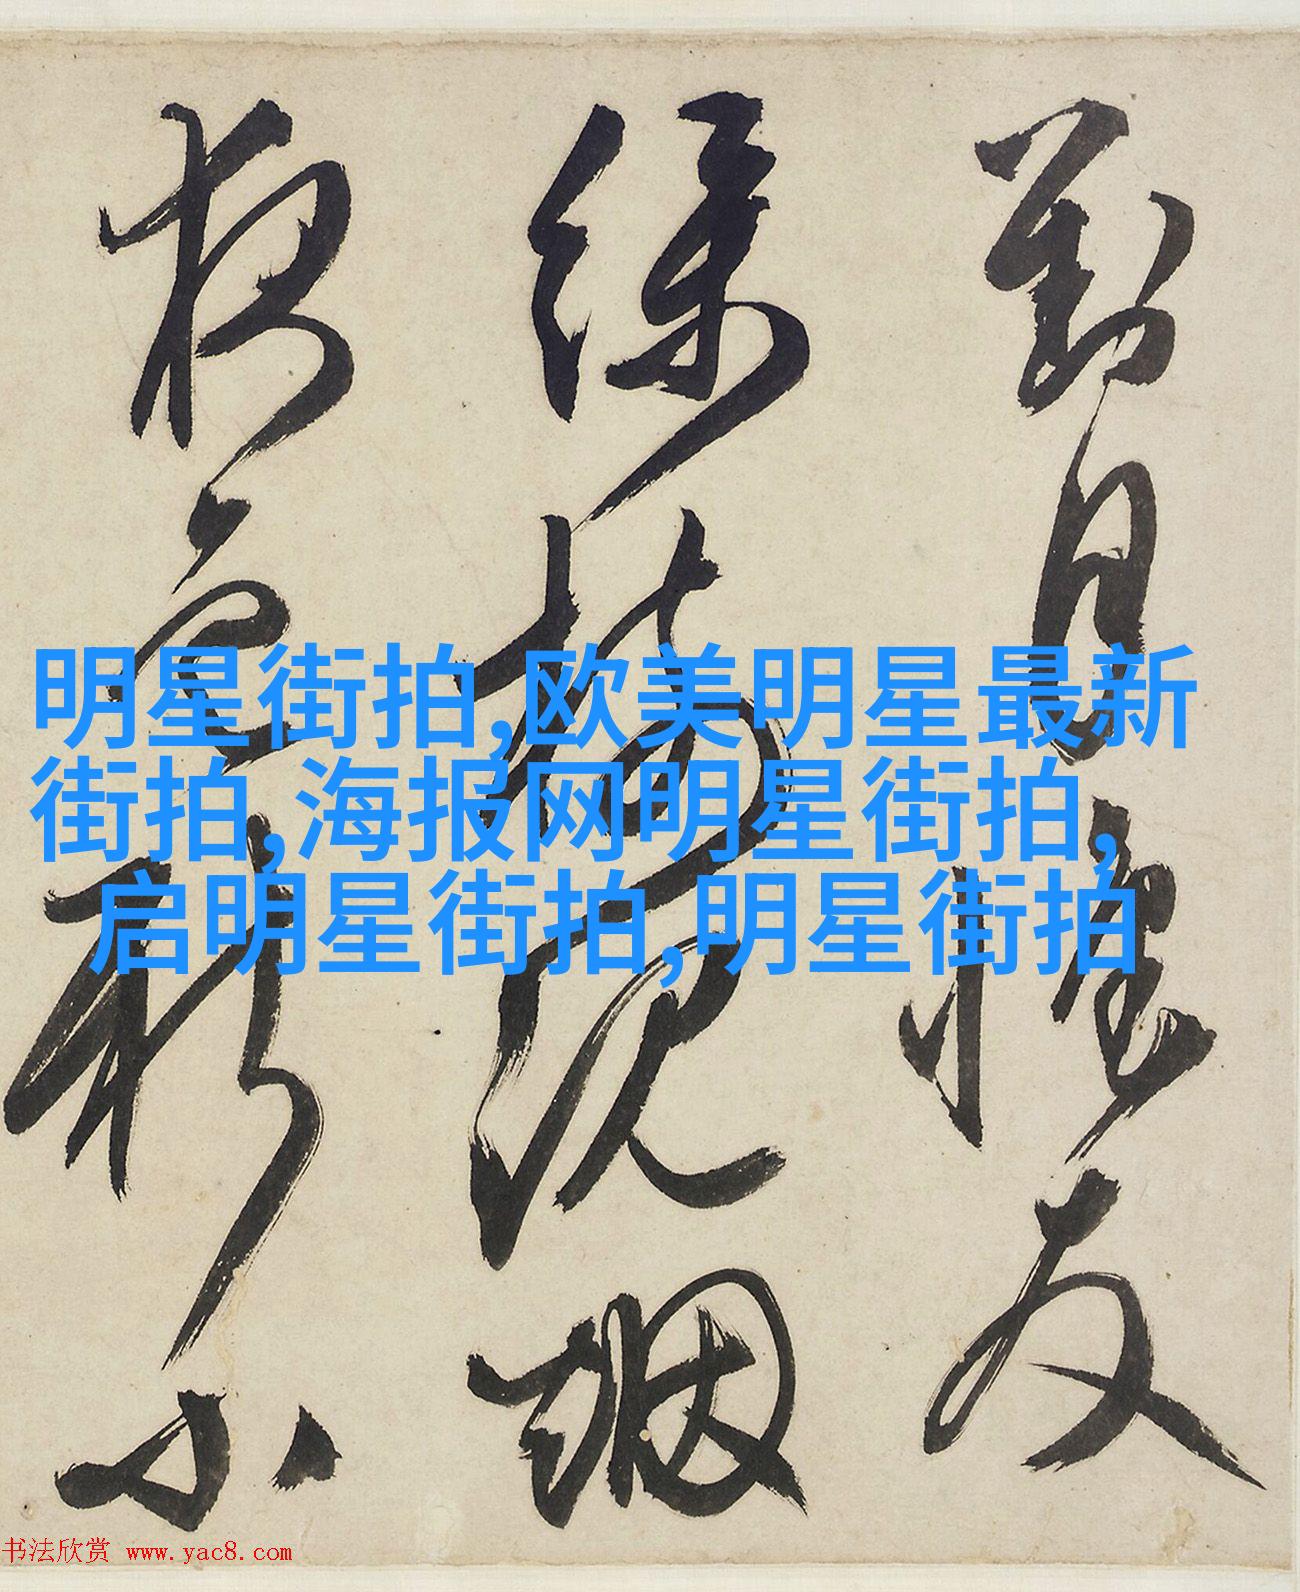 對月懷友
綠楊烟
夜色小
明星街拍,欧美明星最新
街拍,海报网明星街拍,
启明星街拍,明星街拍
书法欣赏 www.yac8.com